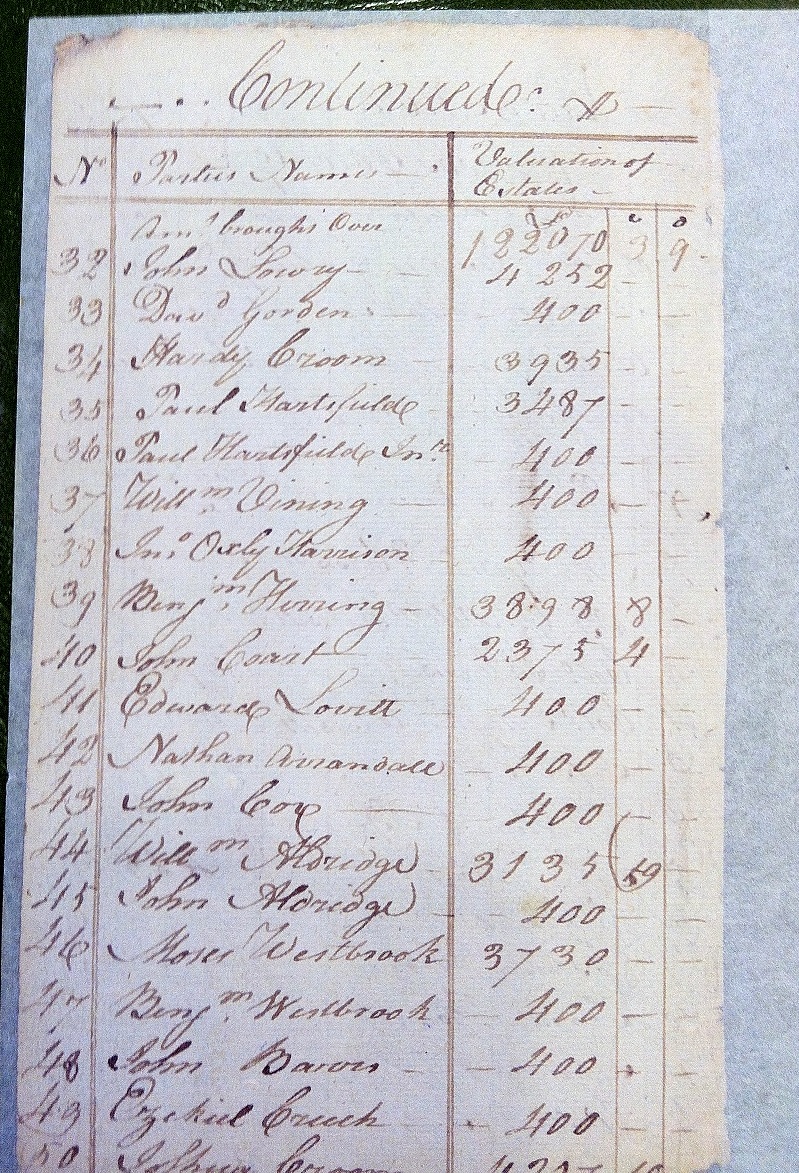 Continued
No Parties Names Valuation of
Estates
Amt. brought Over 122070 3 9
32 John Lowry 4252 - -
33 Davd Gorden 400 - -
34 Hardy Croom 3935 - -
35 Paul Hartsfilde 3487 - -
36 Paul Hartsfilde Jnr. 400 - -
37 Willm. Vining 400 - -
38 Jno. Oxly Harrison 400 - -
39 Benjm. Herring 3898 8 -
40 John Coart 2375 4 -
41 Edward Lovitt 400 - -
42 Nathan Arrandall 400 - -
43 John Cox 400 - -
44 Willm Aldridge 3135 -
45 John Aldridge 400 - -
46 Moses Westbrook 3730 - -
47 Benjm. Westbrook 400 - -
48 John 400 - -
49 Ezekiel 400 - -
50 Joshua Croom